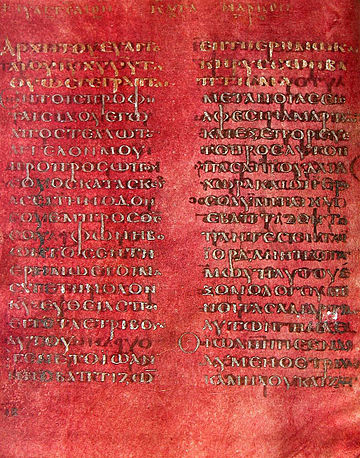 ΕΥΑΓΓΕΛΙΟΝ ΚΑΤΑ ΜΑΡΚΟΝ
ΑΡΧΗΤΟΥΕΥΑΓΓΕ
ΛΙΟΥΙΥΧΥΥΙΟΥΤΟΥ
ΘΥΩϹΓΕΓΡΑΠΤΑΙ
ΕΝΤΟΙϹΠΡΟΦΗ
ΤΑΙϹΙΔΟΥΕΓΩ
ΑΠΟϹΤΕΛΛΩΤΟΝ
ΑΓΓΕΛΟΝΜΟΥ
ΠΡΟΠΡΟϹΩΠΟΥ
ϹΟΥΟϹΚΑΤΑϹΚΕΥ
ΑϹΕΙΤΗΝΟΔΟΝ
ϹΟΥΕΜΠΡΟϹΘΕΝ
ϹΟΥΦΩΝΗΒΟ
ΩΝΤΟϹΕΝΤΗ
ΕΡΗΜΩΕΤΟΙΜΑ
ϹΑΤΕΤΗΝΟΔΟΝ
ΚΥΕΥΘΕΙΑϹΠΟΙ
ΕΙΤΕΤΑϹΤΡΙΒΟΥϹ
ΑΥΤΟΥ
ΕΓΕΝΕΤΟΙΩΑΝ
ΝΗϹΒΑΠΤΙΖΩΝ
ΕΝΤΗΕΡΗΜΩΚΑΙ
ΚΗΡΥϹϹΩΝΒΑ
ΠΤΙϹΜΑ
ΜΕΤΑΝΟΙΑϹΕΙϹ
ΑΦΕϹΙΝΑΜΑΡΤΙΩΝ
ΚΑΙΕΞΕΠΟΡΕΥΕ
ΤΟΠΡΟϹΑΥΤΟΝ
ΠΑϹΑΗΙΟΥΔΑΙΑ
ΧΩΡΑΚΑΙΟΙΙΕΡΟ
ϹΟΛΥΜΙΤΑΙΚΑΙ
ΕΒΑΠΤΙΖΟΝΤΟ
ΠΑΝΤΕϹΕΝΤΩ
ΙΟΡΔΑΝΗΠΟΤΑ
ΜΩΥΠΑΥΤΟΥΕ
ΞΟΜΟΛΟΓΟΥΜΕ
ΝΟΙΤΑϹΑΜΑΡΤΙΑϹ
ΑΥΤΩΝΗΝΔΕΟ
ΙΩΑΝΝΗϹΕΝΔΕ
ΔΥΜΕΝΟϹΤΡΙΧΑϹ
ΚΑΜΗΛΟΥΚΑΙΖΩ